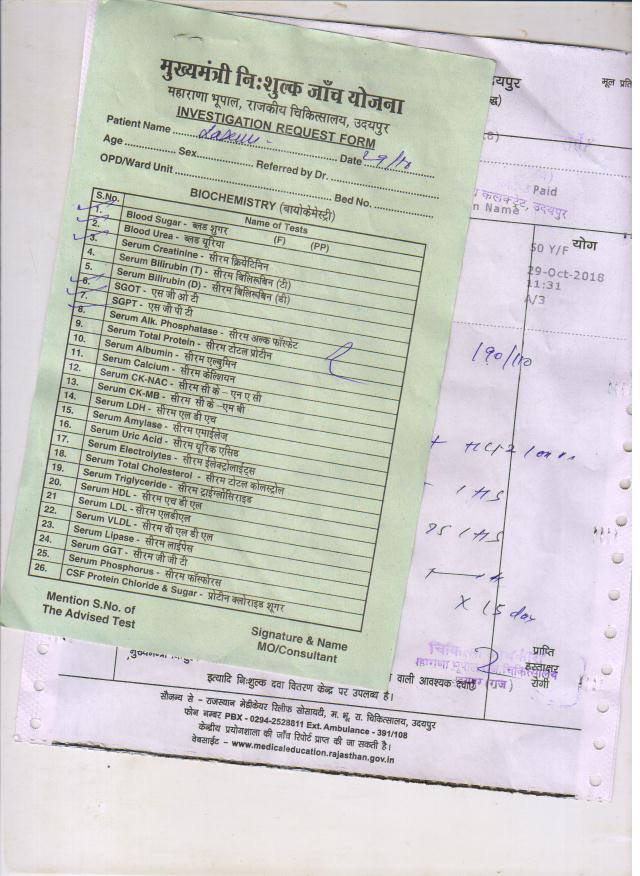 मुख्यमंत्री निःशुल्क जाँच योजना
महाराणा भूपाल, राजकीय चिकित्सालय, उदयपुर
INVESTIGATION REQUEST FORM
Patient Name Laxmi Date 29/10
Age Sex Referred by Dr.
OPD/Ward Unit Bed No.
BIOCHEMISTRY (बायोकेमेस्ट्री)
S.No. Name of Tests
1. Blood Sugar - ब्लड शुगर (F) (PP)
2. Blood Urea - ब्लड यूरिया
3. Serum Creatinine - सीरम क्रियेटिनिन
4. Serum Bilirubin (T) - सीरम बिलिरूबिन (टी)
5. Serum Bilirubin (D) - सीरम बिलिरूबिन (डी)
6. SGOT - एस जी ओ टी
7. SGPT - एस जी पी टी
8. Serum Alk. Phosphatase - सीरम अल्क फॉस्फेट
9. Serum Total Protein - सीरम टोटल प्रोटीन
10. Serum Albumin - सीरम एल्बुमिन
11. Serum Calcium - सीरम केल्शियन
12. Serum CK-NAC - सीरम सी के – एन ए सी
13. Serum CK-MB - सीरम सी के –एम बी
14. Serum LDH - सीरम एल डी एच
15. Serum Amylase - सीरम एमाईलेज
16. Serum Uric Acid - सीरम यूरिक एसिड
17. Serum Electrolytes - सीरम ईलेक्ट्रोलाईट्स
18. Serum Total Cholesterol - सीरम टोटल कोलस्ट्रोल
19. Serum Triglyceride - सीरम ट्राईग्लोसिराइड
20. Serum HDL - सीरम एच डी एल
21 Serum LDL - सीरम एलडीएल
22. Serum VLDL - सीरम वी एल डी एल
23. Serum Lipase - सीरम लाईपेस
24. Serum GGT - सीरम जी जी टी
25. Serum Phosphorus - सीरम फॉस्फोरस
26. CSF Protein Chloride & Sugar - प्रोटीन क्लोराइड शूगर
Mention S.No. of
The Advised Test
Signature & Name
MO/Consultant
दयपुर मूल प्रति
Paid
कलक्ट्रेट, उदयपुर
n Name
योग
50 Y/F
29-Oct-2018
11:31
A/3
190/110
1 HS
1 HS
X 15 day
प्राप्ति
हस्ताक्षर
रोगी
इत्यादि निःशुल्क दवा वितरण केन्द्र पर उपलब्ध है। वाली आवश्यक दवाएं
सौजन्य से – राजस्थान मेडीकेयर रिलीफ सोसायटी, म. भू. रा. चिकित्सालय, उदयपुर
फोन नम्बर PBX - 0294-2528811 Ext. Ambulance - 391/108
केन्द्रीय प्रयोगशाला की जाँच रिपोर्ट प्राप्त की जा सकती है।
वेबसाईट – www.medicaleducation.rajasthan.gov.in